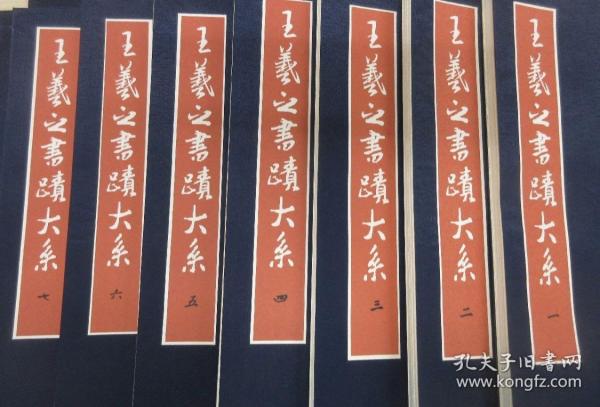 王羲之書蹟大系
一
王羲之書蹟大系
二
王羲之書蹟大系
三
王羲之書蹟大系
四
王羲之書蹟大系
五
王羲之書蹟大系
六
王羲之書蹟大系
七
孔夫子旧書网
www.kongfz.com